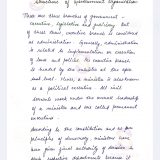 Structure of Government Organisation
There are three branches of government -
executive, legislative and judiciary. Out
of these three, executive branch is considered
as administration. Generally, administration
is related to implementation or execution
of laws and policies. The executive branch
is headed by the minister and
level. Hence, a minister is also known
as a political executive. All civil
servants work under the overall leadership
of a minister and are called permanent
executives.
According to the constitution and as per
principles of democracy, ministers have
been given final authority of decision
executive departments because it